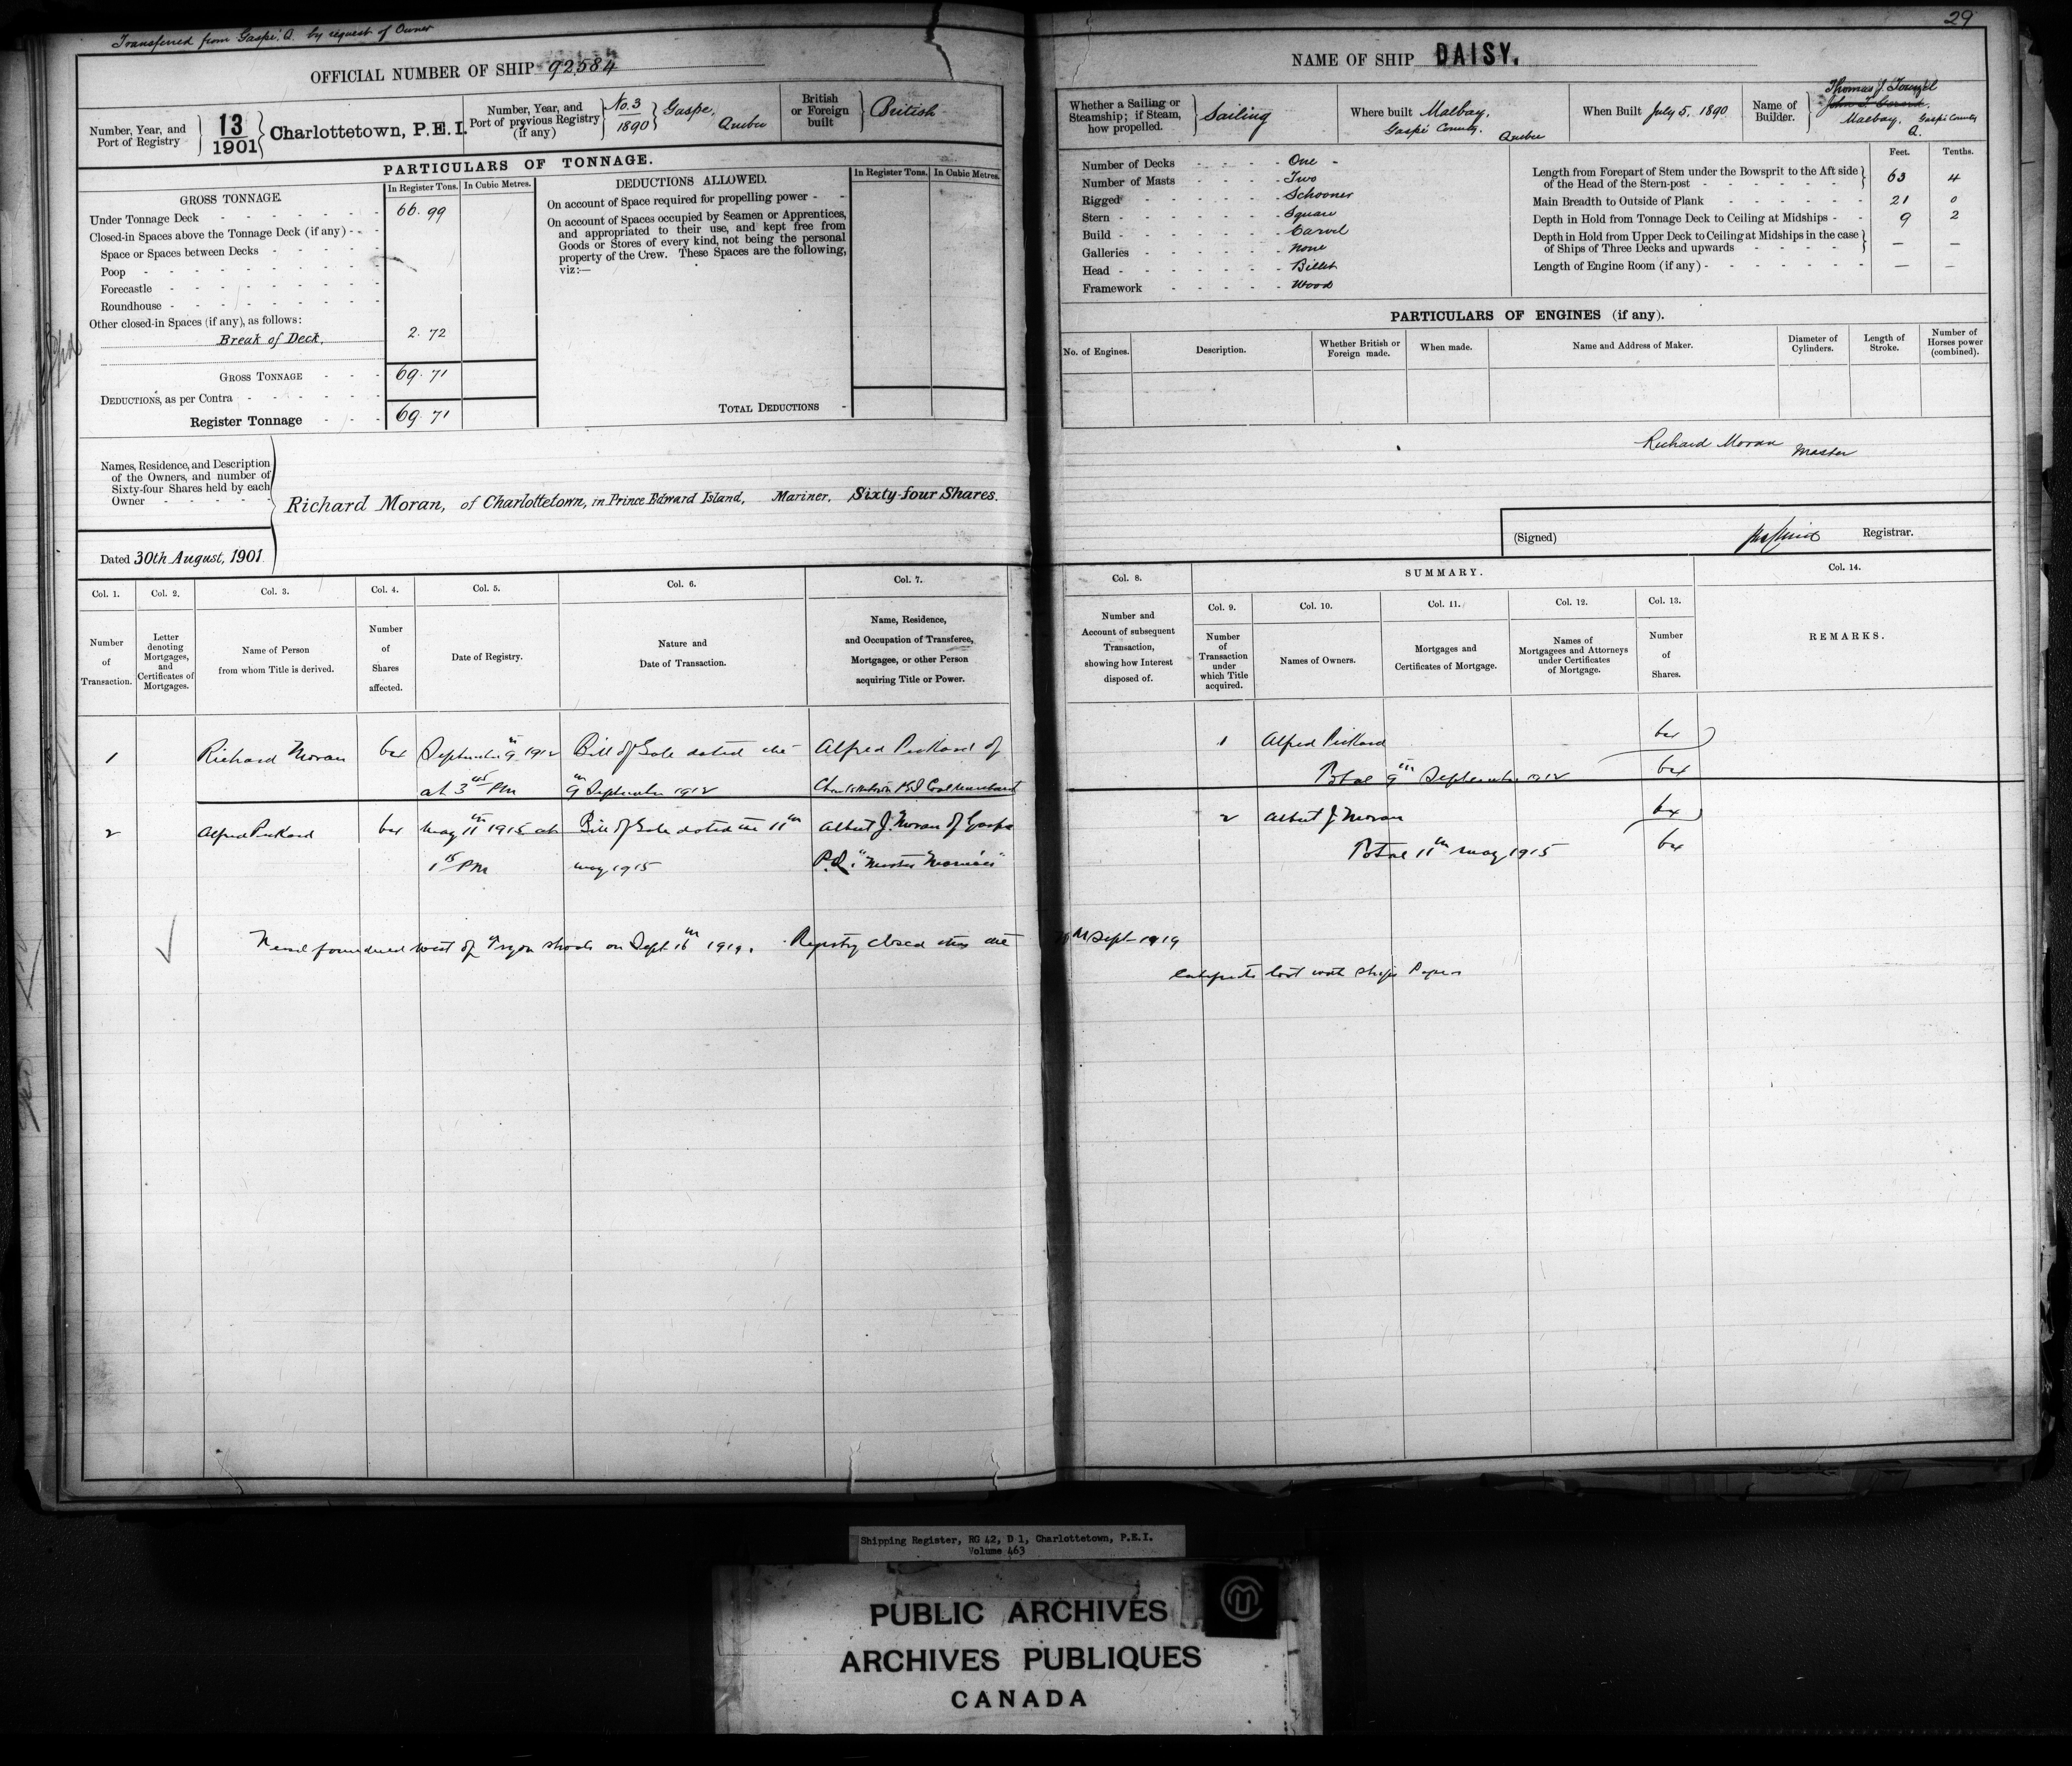 Transferred from Gaspé, Q. by request of Owner
29
OFFICIAL NUMBER OF SHIP 92,584
NAME OF SHIP DAISY.
Number, Year, and Port of Registry } 13/1901 } Charlottetown, P.E.I.
Number, Year, and Port of previous Registry (if any) } No. 3/1890 } Gaspe, Quebec
British or Foreign built } British
Whether a Sailing or Steamship; if Steam, how propelled. } Sailing
Where built Malbay, Gaspé County, Quebec
When Built July 5, 1890
Name of Builder. } Thomas J.
Malbay, Gaspé County Q.
PARTICULARS OF TONNAGE.
GROSS TONNAGE. In Register Tons. In Cubic Metres.
Under Tonnage Deck 66.99
Closed-in Spaces above the Tonnage Deck (if any)
Space or Spaces between Decks
Poop
Forecastle
Roundhouse
Other closed-in Spaces (if any), as follows:
Break of Deck. 2.72
GROSS TONNAGE 69.71
DEDUCTIONS, as per Contra
Register Tonnage 69.71
DEDUCTIONS ALLOWED. In Register Tons. In Cubic Metres.
On account of Space required for propelling power
On account of Spaces occupied by Seamen or Apprentices,
and appropriated to their use, and kept free from
Goods or Stores of every kind, not being the personal
property of the Crew. These Spaces are the following,
viz:—
TOTAL DEDUCTIONS
Number of Decks One
Number of Masts Two
Rigged Schooner
Stern Square
Build Carvel
Galleries None
Head Billet
Framework Wood
Feet. Tenths.
Length from Forepart of Stem under the Bowsprit to the Aft side of the Head of the Stern-post 63 4
Main Breadth to Outside of Plank 21 0
Depth in Hold from Tonnage Deck to Ceiling at Midships 9 2
Depth in Hold from Upper Deck to Ceiling at Midships in the case of Ships of Three Decks and upwards — —
Length of Engine Room (if any) — —
PARTICULARS OF ENGINES (if any).
No. of Engines. Description. Whether British or Foreign made. When made. Name and Address of Maker. Diameter of Cylinders. Length of Stroke. Number of Horses power (combined).
Richard Moran Master
Names, Residence, and Description
of the Owners, and number of
Sixty-four Shares held by each
Owner
Richard Moran, of Charlottetown, in Prince Edward Island, Mariner, Sixty-four Shares.
Dated 30th August, 1901
(Signed) Registrar.
Col. 1. Col. 2. Col. 3. Col. 4. Col. 5. Col. 6. Col. 7. Col. 8. SUMMARY. Col. 14.
Col. 9. Col. 10. Col. 11. Col. 12. Col. 13.
Number of Transaction.
Letter denoting Mortgages, and Certificates of Mortgages.
Name of Person from whom Title is derived.
Number of Shares affected.
Date of Registry.
Nature and Date of Transaction.
Name, Residence, and Occupation of Transferee, Mortgagee, or other Person acquiring Title or Power.
Number and Account of subsequent Transaction, showing how Interest disposed of.
Number of Transaction under which Title acquired.
Names of Owners.
Mortgages and Certificates of Mortgage.
Names of Mortgagees and Attorneys under Certificates of Mortgage.
Number of Shares.
REMARKS.
1 Richard Moran 64 September 9th 1912 Bill of Sale dated the Alfred Pickard of 1 Alfred Pickard 64
at 3 PM 9th September 1912 Charlottetown PEI Coal Merchant Total 9th September 1912 64
2 Alfred Pickard 64 May 11th 1915 at Bill of Sale dated the 11th Albert J. Moran of Gaspe 2 Albert J. Moran 64
1 PM May 1915 P.Q. "Master Mariner" Total 11th May 1915 64
Vessel foundered west of Tryon shoals on Sept 16th 1919. Registry closed this Sept 1919
Certificate lost with ships Papers
Shipping Register, RG 42, D 1, Charlottetown, P.E.I.
Volume 463
PUBLIC ARCHIVES
ARCHIVES PUBLIQUES
CANADA